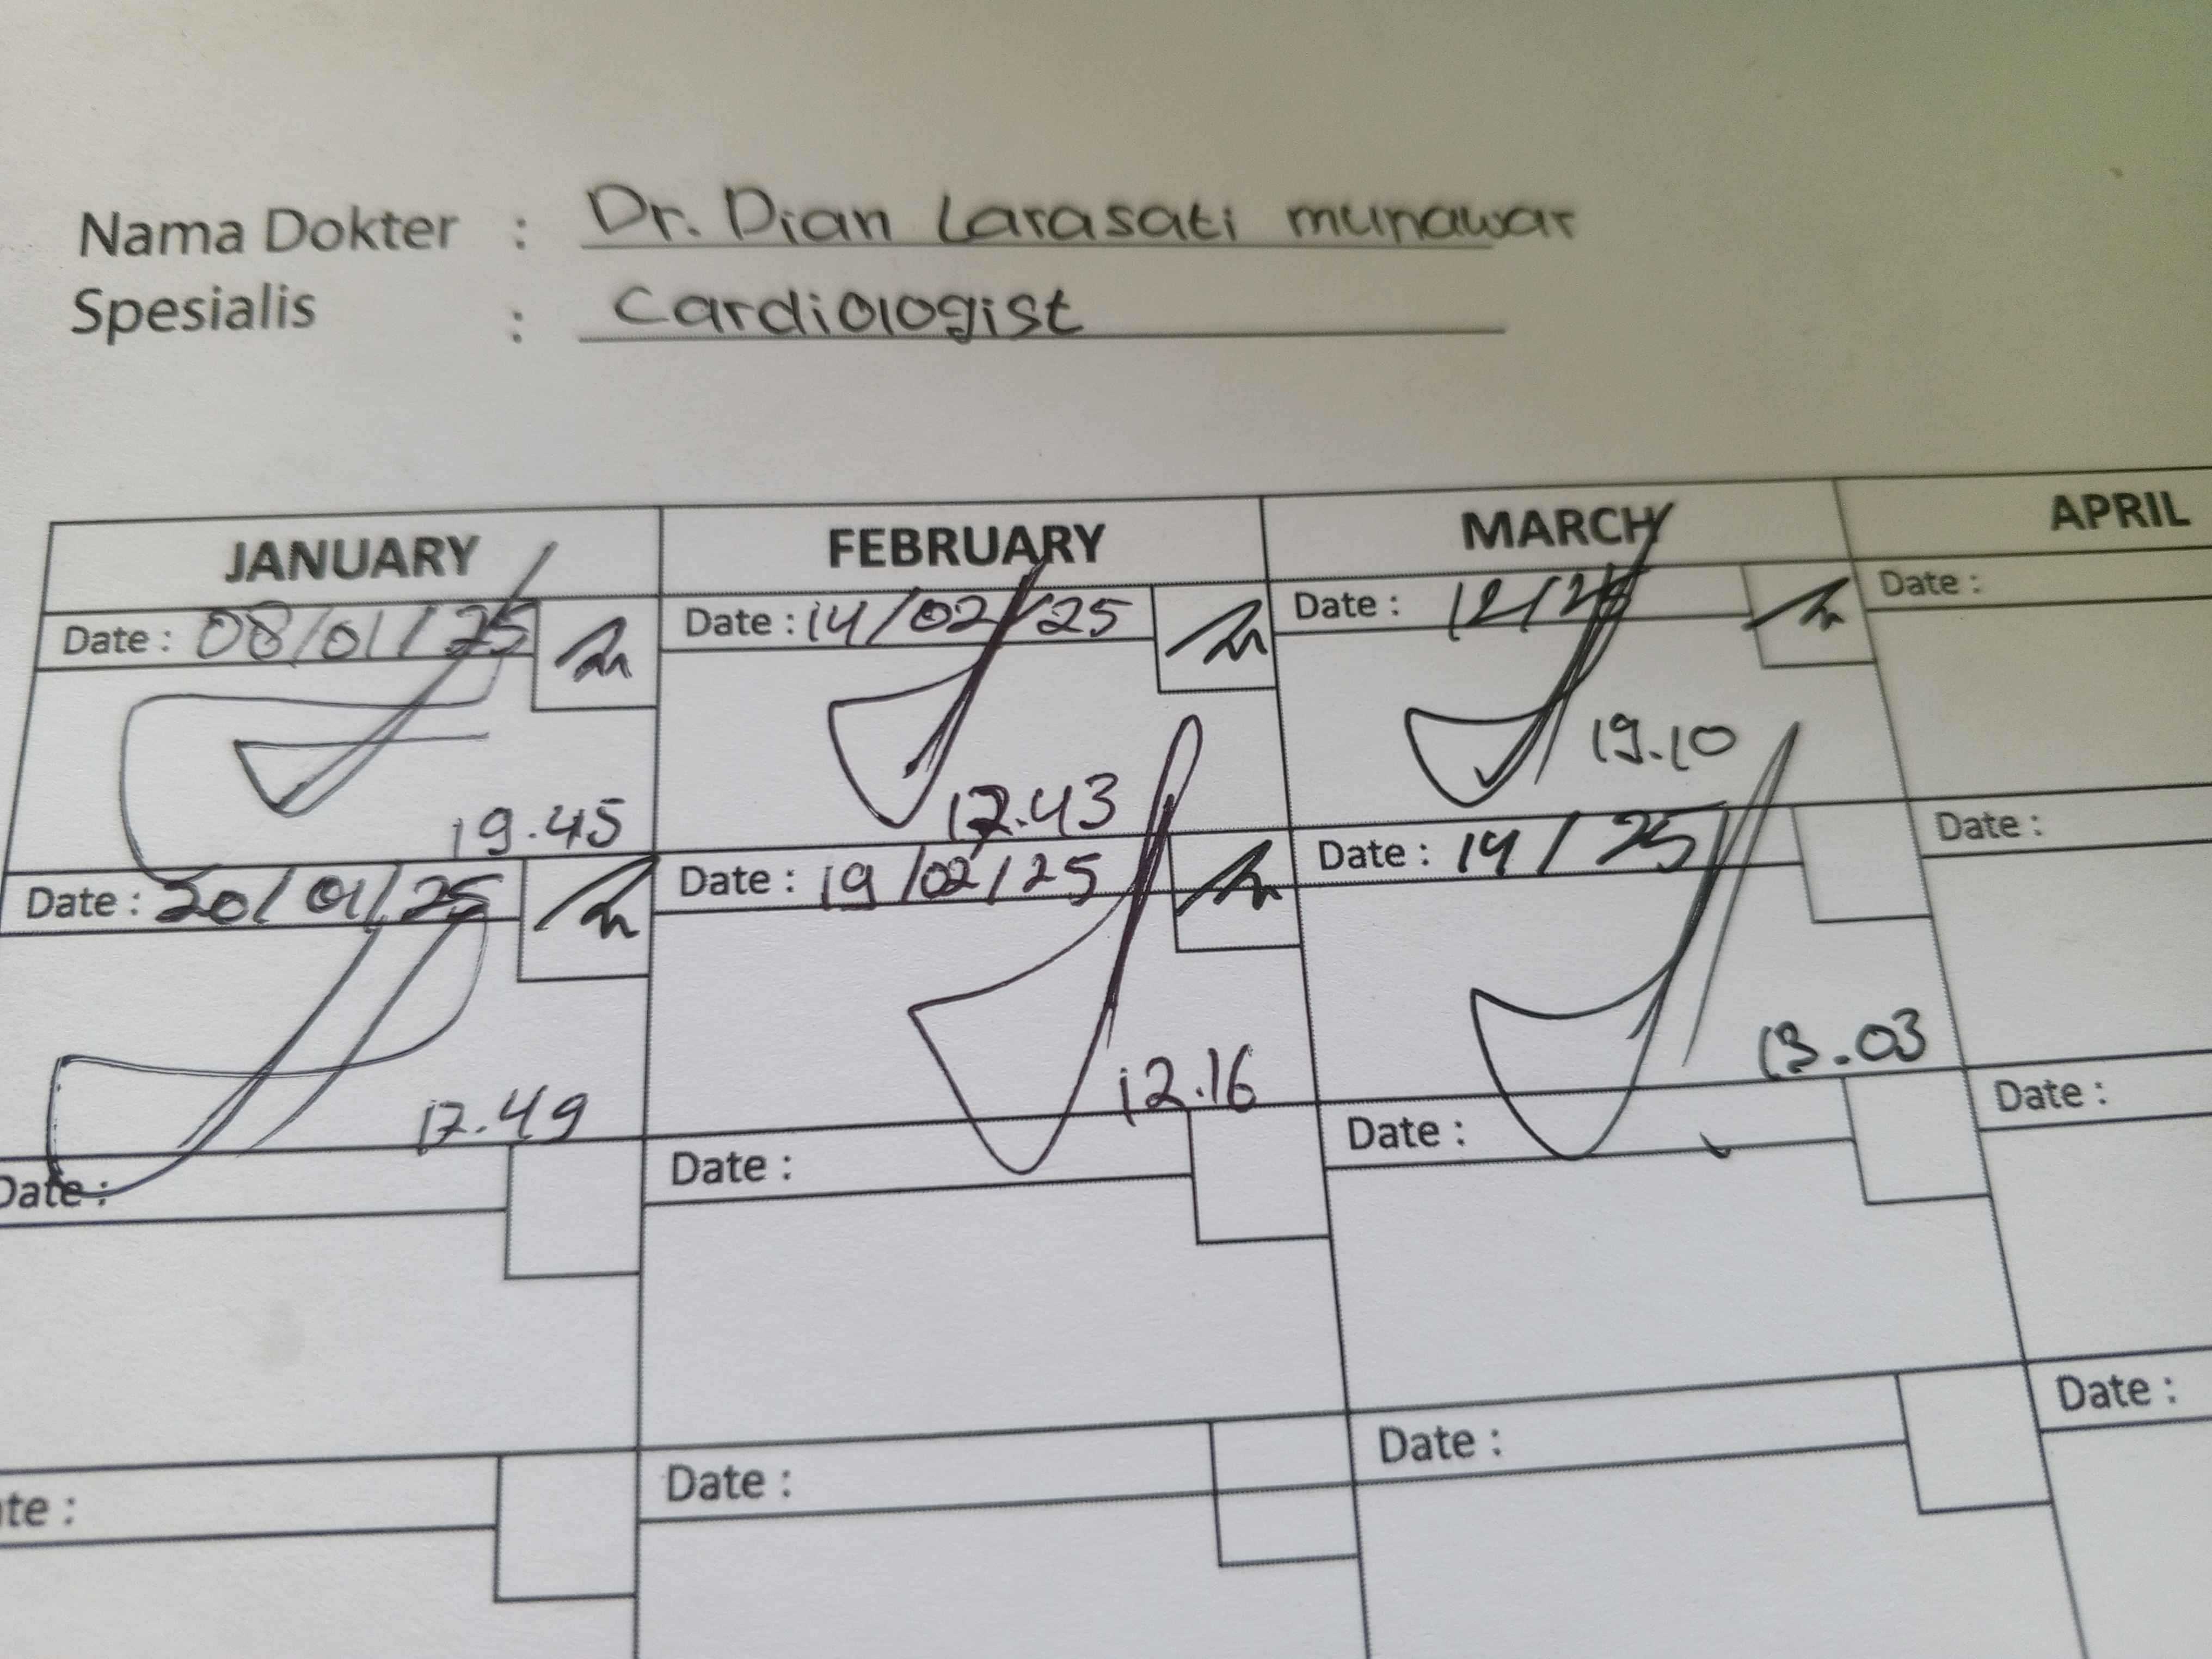 Nama Dokter : Dr. Dian Larasati munawar
Spesialis : Cardiologist
JANUARY FEBRUARY MARCH APRIL
Date : 08/01/25 Date : 14/02/25 Date : 12/25 Date :
19.45 17.43 19.10
Date : 20/01/25 Date : 19/02/25 Date : 14/25 Date :
17.49 12.16 13.03
Date : Date : Date : Date :
te : Date : Date : Date :